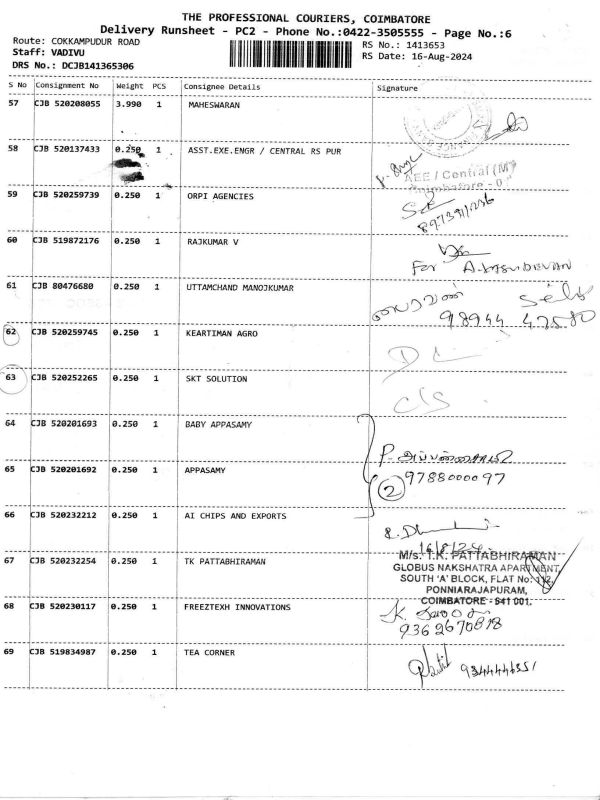 THE PROFESSIONAL COURIERS, COIMBATORE
Delivery Runsheet - PC2 - Phone No.:0422-3505555 - Page No.:6
Route: COKKAMPUDUR ROAD
RS No.: 1413653
Staff: VADIVU
RS Date: 16-Aug-2024
DRS No.: DCJB141365306
S No Consignment No Weight PCS Consignee Details Signature
57 CJB 520208055 3.990 1 MAHESWARAN
58 CJB 520137433 0.250 1 ASST.EXE.ENGR / CENTRAL RS PUR
AEE / Central (M)
Coimbatore
59 CJB 520259739 0.250 1 ORPI AGENCIES
60 CJB 519872176 0.250 1 RAJKUMAR V
For A.VASUDEVAN
61 CJB 80476680 0.250 1 UTTAMCHAND MANOJKUMAR
98944 47580
62 CJB 520259745 0.250 1 KEARTIMAN AGRO
63 CJB 520252265 0.250 1 SKT SOLUTION
64 CJB 520201693 0.250 1 BABY APPASAMY
65 CJB 520201692 0.250 1 APPASAMY
2 9788000097
66 CJB 520232212 0.250 1 AI CHIPS AND EXPORTS
16/8/24
67 CJB 520232254 0.250 1 TK PATTABHIRAMAN
M/s. T.K. PATTABHIRAMAN
GLOBUS NAKSHATRA APARTMENT,
SOUTH 'A' BLOCK, FLAT No: 112,
PONNIARAJAPURAM,
COIMBATORE - 641 001.
68 CJB 520230117 0.250 1 FREEZTEXH INNOVATIONS
9362670818
69 CJB 519834987 0.250 1 TEA CORNER